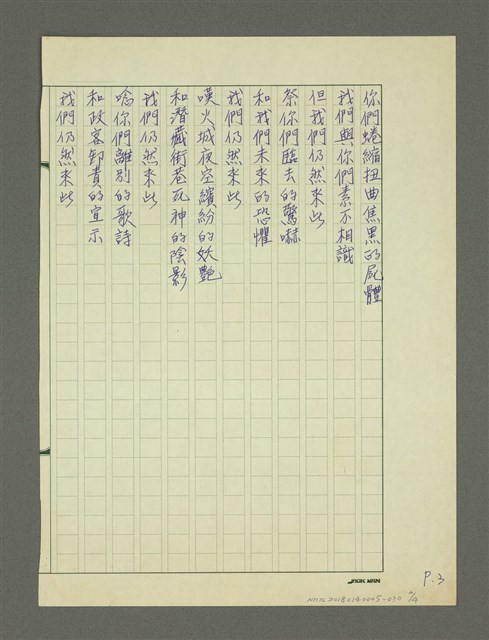 你們蜷縮扭曲焦黑的屍體
我們與你們素不相識
但我們仍然來此
祭你們臨去的驚嚇
和我們未來的恐懼
我們仍然來此
嘆火城夜空繽紛的妖艷
和潛藏街巷死神的陰影
我們仍然來此
唸你們離別的歌詩
和政客卸責的宣示
我們仍然來此
P.3
NMTL20180140005-030 2/4